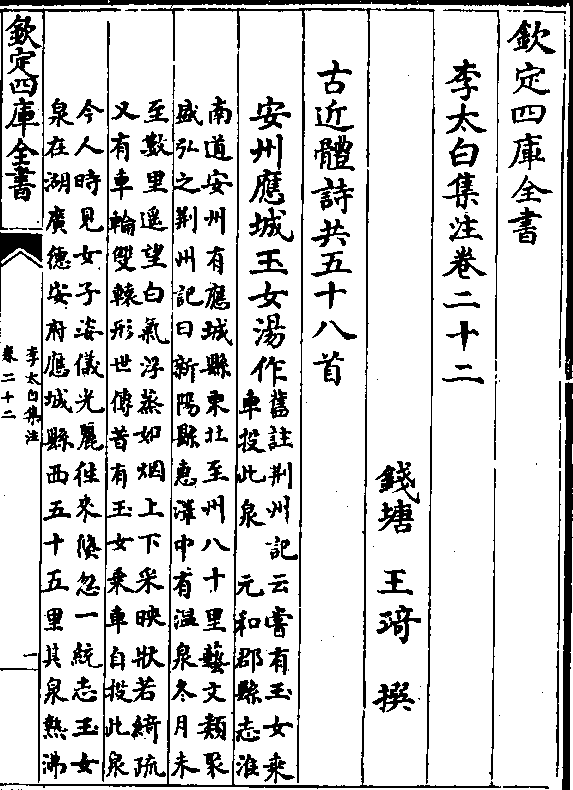 欽定四庫全書
李太白集注卷二十二
錢塘 王琦 撰
古近體詩共五十八首
安州應城玉女湯作
舊註荆州記云嘗有玉女乗
車投此泉 元和郡縣志淮
南道安州有應城縣東北至州八十里藝文類聚
盛弘之荆州記曰新陽縣惠澤中有温泉冬月未
至數里遥望白氣浮蒸如烟上下采映狀若綺疏
又有車輪雙轅形世傳昔有玉女乗車自投此泉
今人時見女子姿儀光麗徃來倏忽一統志玉女
泉在湖廣德安府應城縣西五十五里其泉熱沸
欽定四庫全書
李太白集注
卷二十二
一